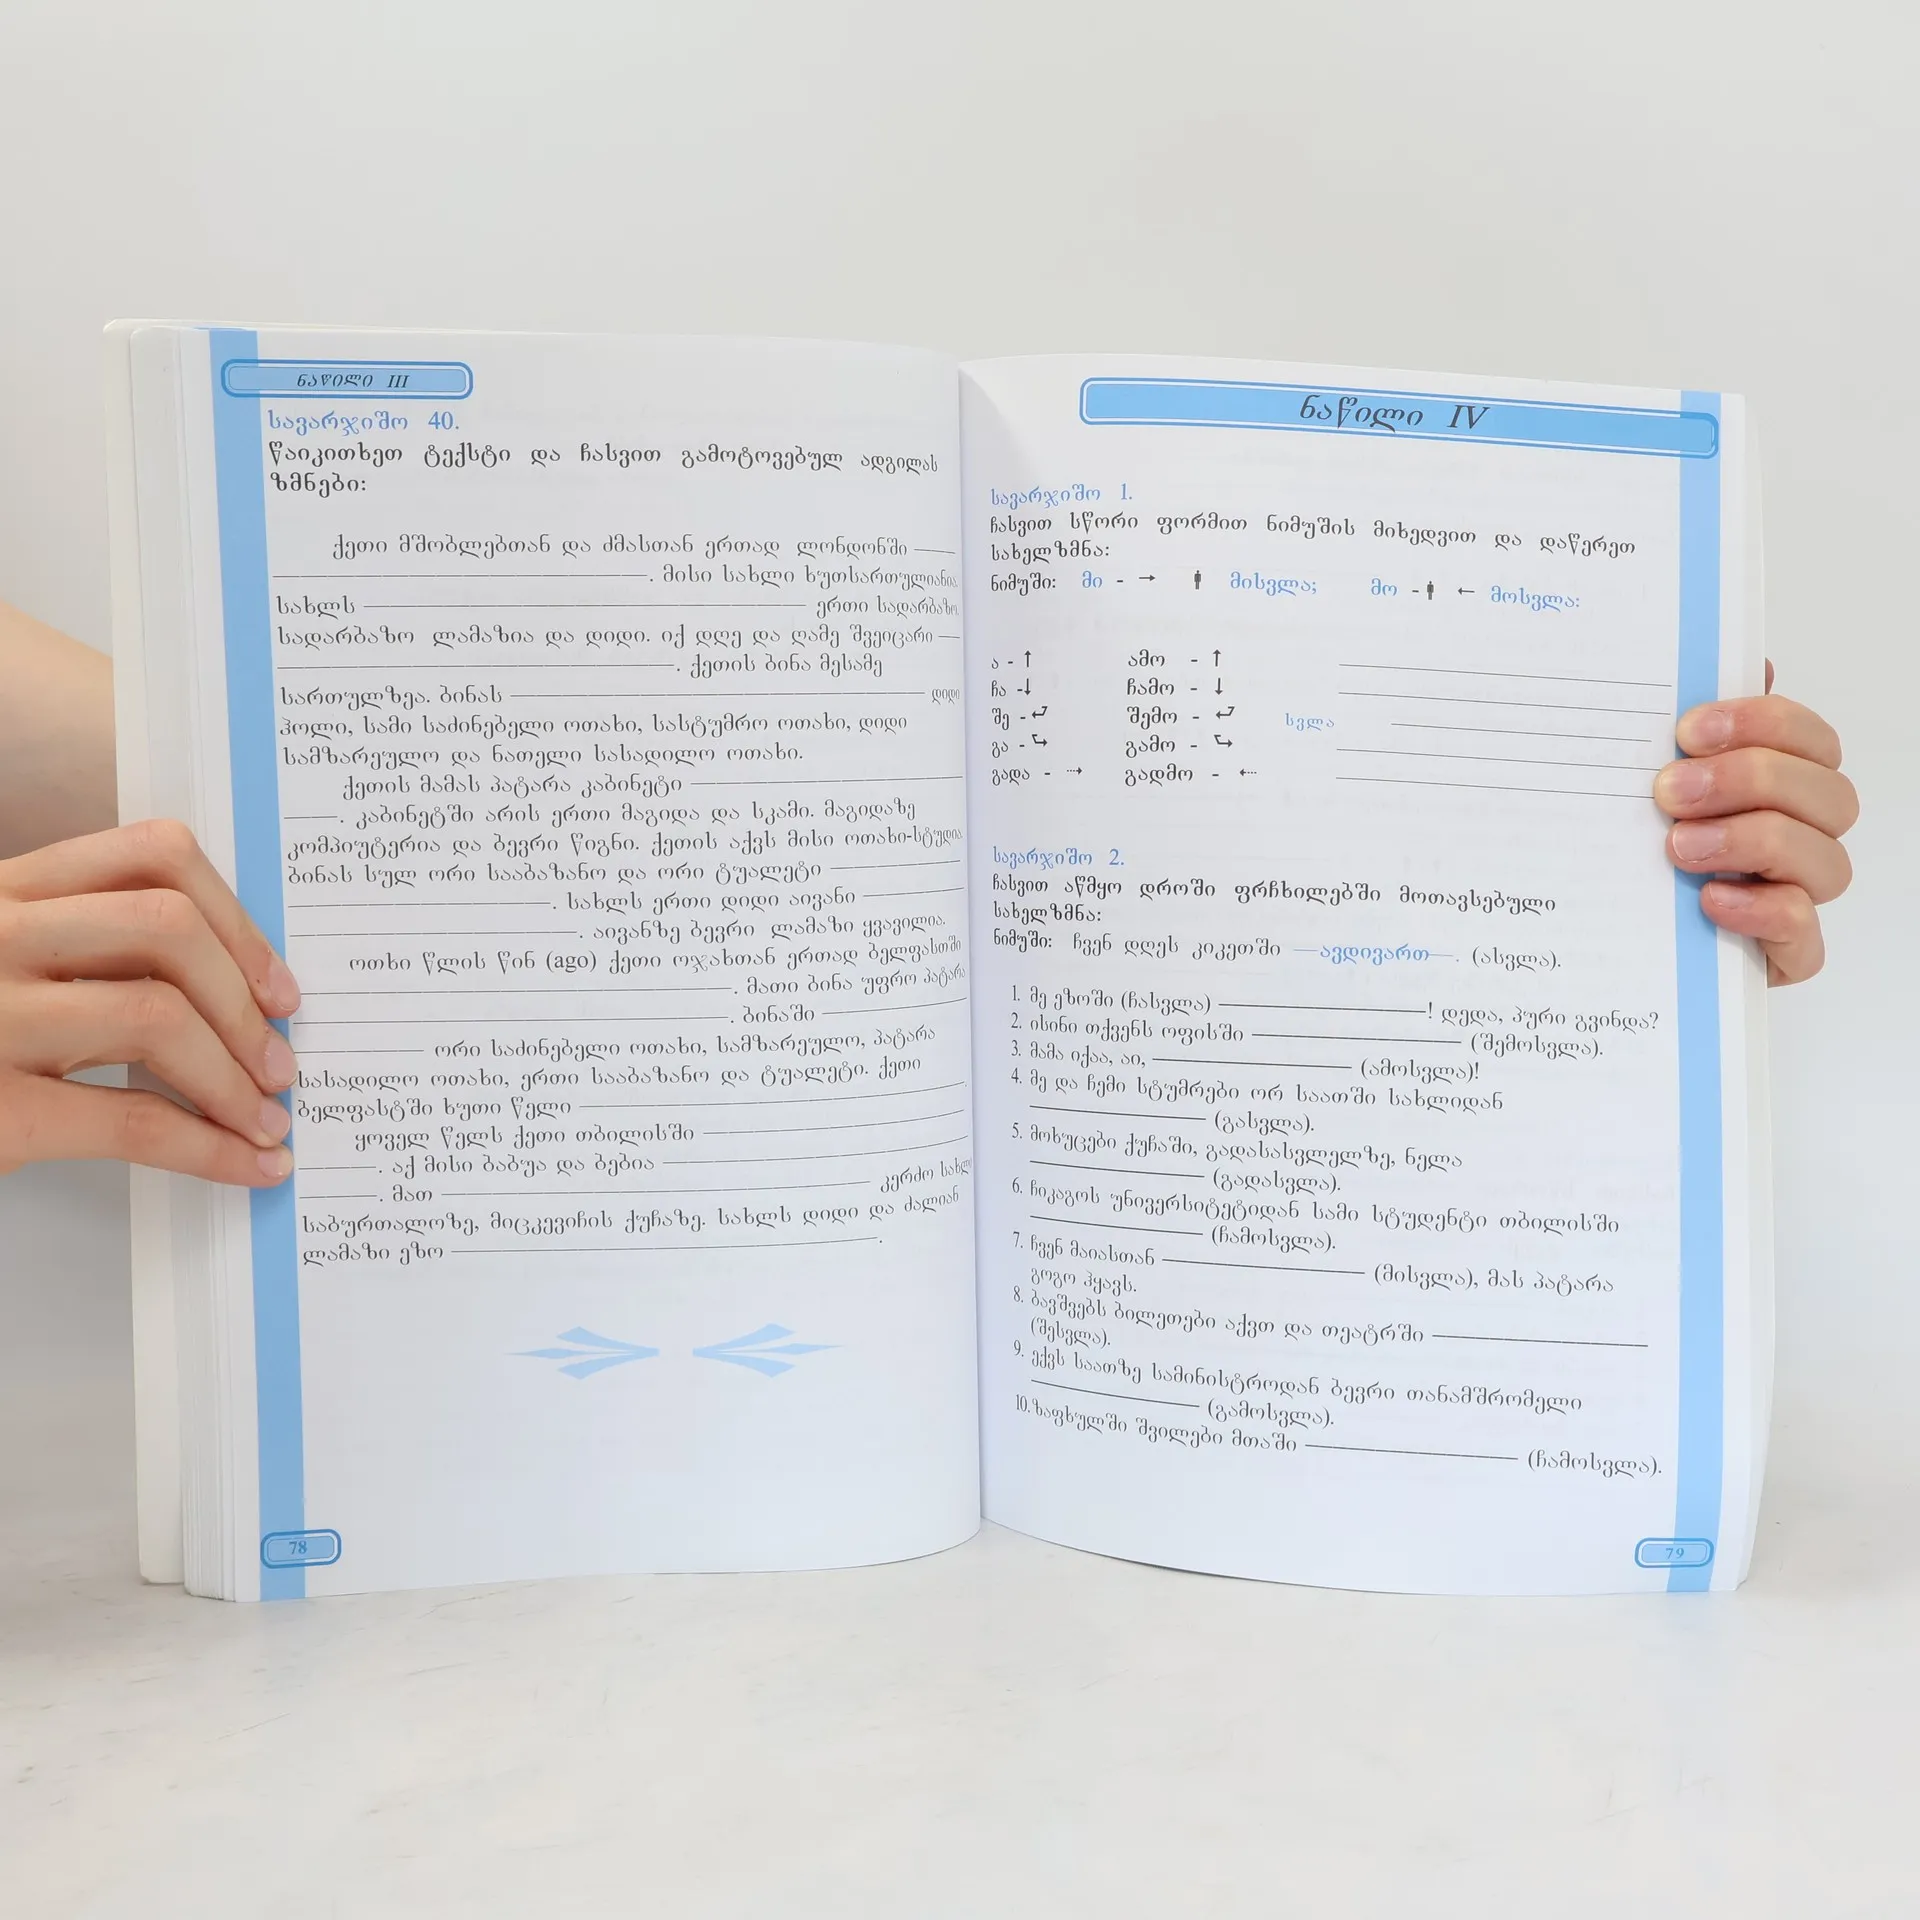 ნაწილი III
სავარჯიშო 40.
წაიკითხეთ ტექსტი და ჩასვით გამოტოვებულ ადგილას
ზმნები:
ქეთი მშობლებთან და ძმასთან ერთად ლონდონში ——
——————. მისი სახლი ხუთსართულიანია.
სახლს —————— ერთი სადარბაზო.
სადარბაზო ლამაზია და დიდი. იქ დღე და ღამე შვეიცარი —
——————. ქეთის ბინა მესამე
სართულზეა. ბინას —————— დიდი
ჰოლი, სამი საძინებელი ოთახი, სასტუმრო ოთახი, დიდი
სამზარეულო და ნათელი სასადილო ოთახი.
ქეთის მამას პატარა კაბინეტი ——————
——. კაბინეტში არის ერთი მაგიდა და სკამი. მაგიდაზე
კომპიუტერია და ბევრი წიგნი. ქეთის აქვს მისი ოთახი-სტუდია.
ბინას სულ ორი სააბაზანო და ორი ტუალეტი ————
——————. სახლს ერთი დიდი აივანი ————
——————. აივანზე ბევრი ლამაზი ყვავილია.
ოთხი წლის წინ (ago) ქეთი ოჯახთან ერთად ბელფასთში
——————. მათი ბინა უფრო პატარა
——————. ბინაში ————
———— ორი საძინებელი ოთახი, სამზარეულო, პატარა
სასადილო ოთახი, ერთი სააბაზანო და ტუალეტი. ქეთი
ბელფასტში ხუთი წელი ——————.
ყოველ წელს ქეთი თბილისში ——————
———. აქ მისი ბაბუა და ბებია ——————
———. მათ —————— კერძო სახლი
საბურთალოზე, მიცკევიჩის ქუჩაზე. სახლს დიდი და ძალიან
ლამაზი ეზო ——————.
78
ნაწილი IV
სავარჯიშო 1.
ჩასვით სწორი ფორმით ნიმუშის მიხედვით და დაწერეთ
სახელზმნა:
ნიმუში: მი - → მისვლა; მო - ← მოსვლა:
ა - ↑ ამო - ↑ ——————
ჩა -↓ ჩამო - ↓ ——————
შე - შემო - სვლა ——————
გა - გამო - ——————
გადა - გადმო - ——————
სავარჯიშო 2.
ჩასვით აწმყო დროში ფრჩხილებში მოთავსებული
სახელზმნა:
ნიმუში: ჩვენ დღეს კიკეთში —ავდივართ—. (ასვლა).
1. მე ეზოში (ჩასვლა) ——————! დედა, პური გვინდა?
2. ისინი თქვენს ოფისში —————— (შემოსვლა).
3. მამა იქაა, აი, —————— (ამოსვლა)!
4. მე და ჩემი სტუმრები ორ საათში სახლიდან
—————— (გასვლა).
5. მოხუცები ქუჩაში, გადასასვლელზე, ნელა
—————— (გადასვლა).
6. ჩიკაგოს უნივერსიტეტიდან სამი სტუდენტი თბილისში
—————— (ჩამოსვლა).
7. ჩვენ მაიასთან —————— (მისვლა), მას პატარა
გოგო ჰყავს.
8. ბავშვებს ბილეთები აქვთ და თეატრში ——————
(შესვლა).
9. ექვს საათზე სამინისტროდან ბევრი თანამშრომელი
—————— (გამოსვლა).
10. ზაფხულში შვილები მთაში —————— (ჩამოსვლა).
79